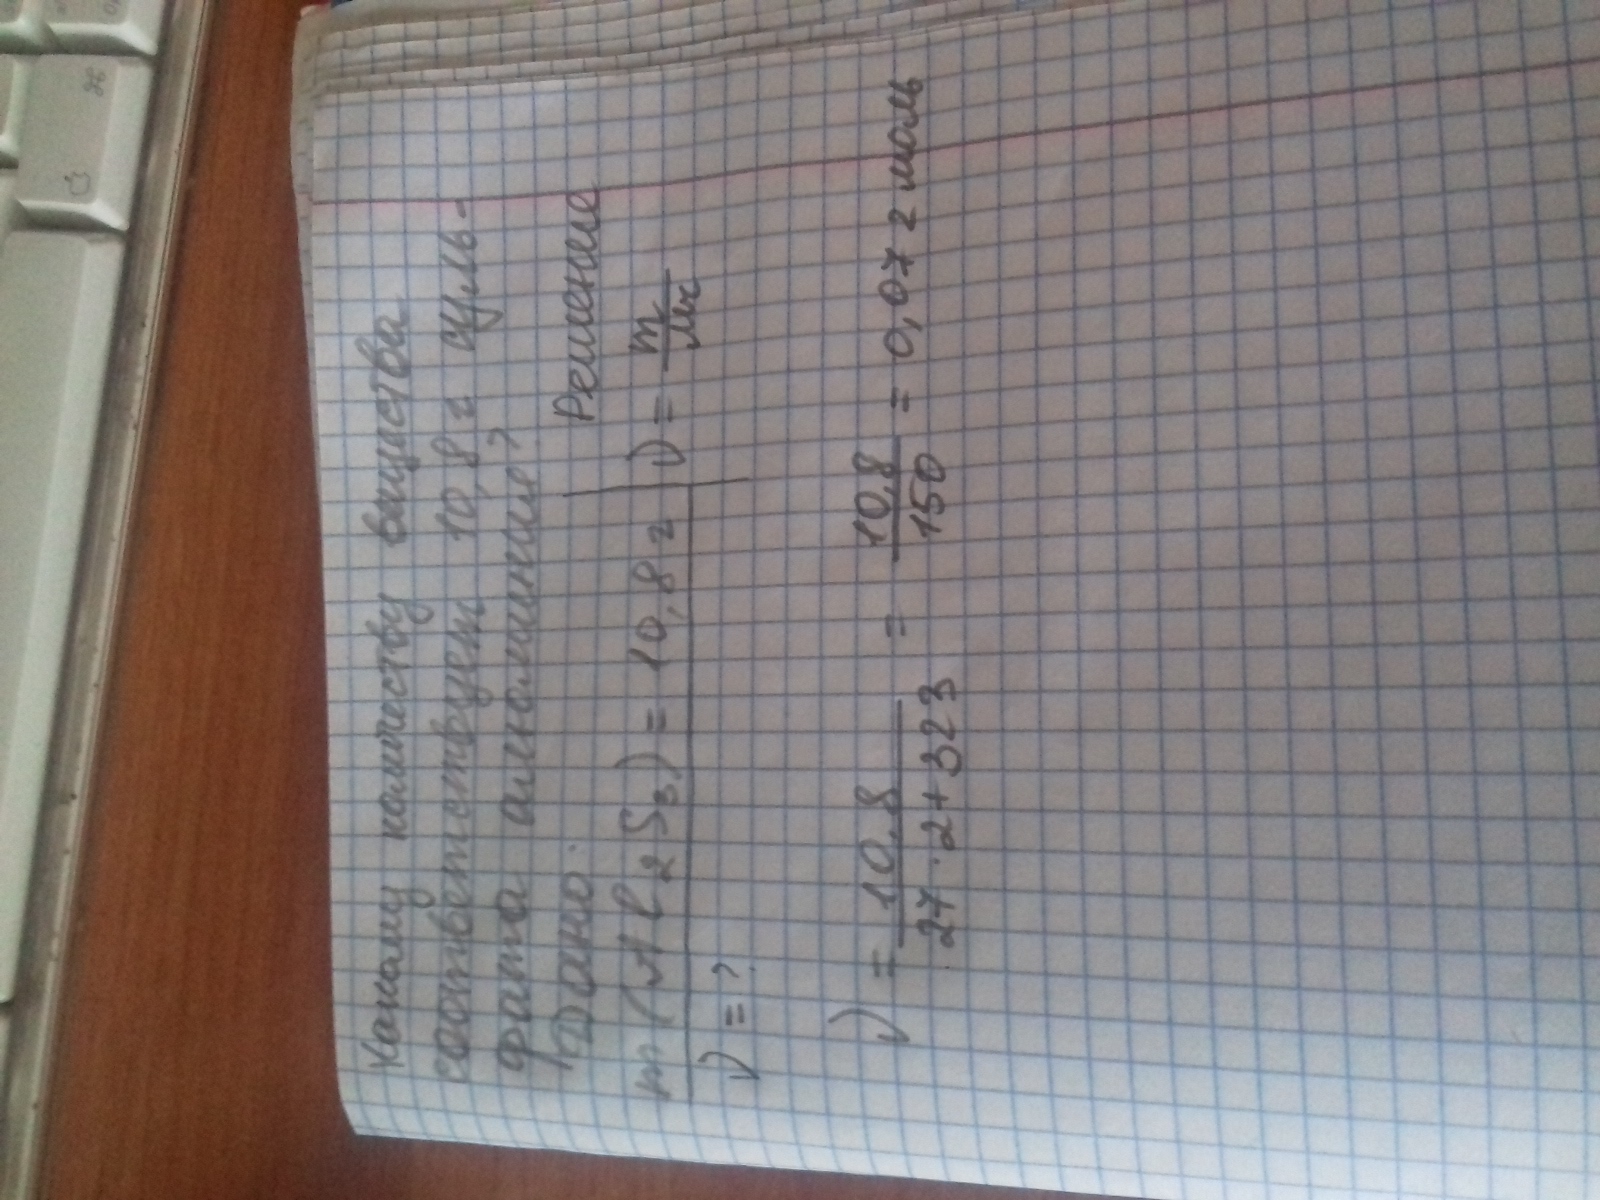 Какому количеству вещества
соответствует 10,8 г суль-
фата алюминия?
Дано: Решение
m(Al2S3) = 10,8 г ν = m/M
ν = ?
ν = 10,8/27·2+323 = 10,8/150 = 0,072 моль